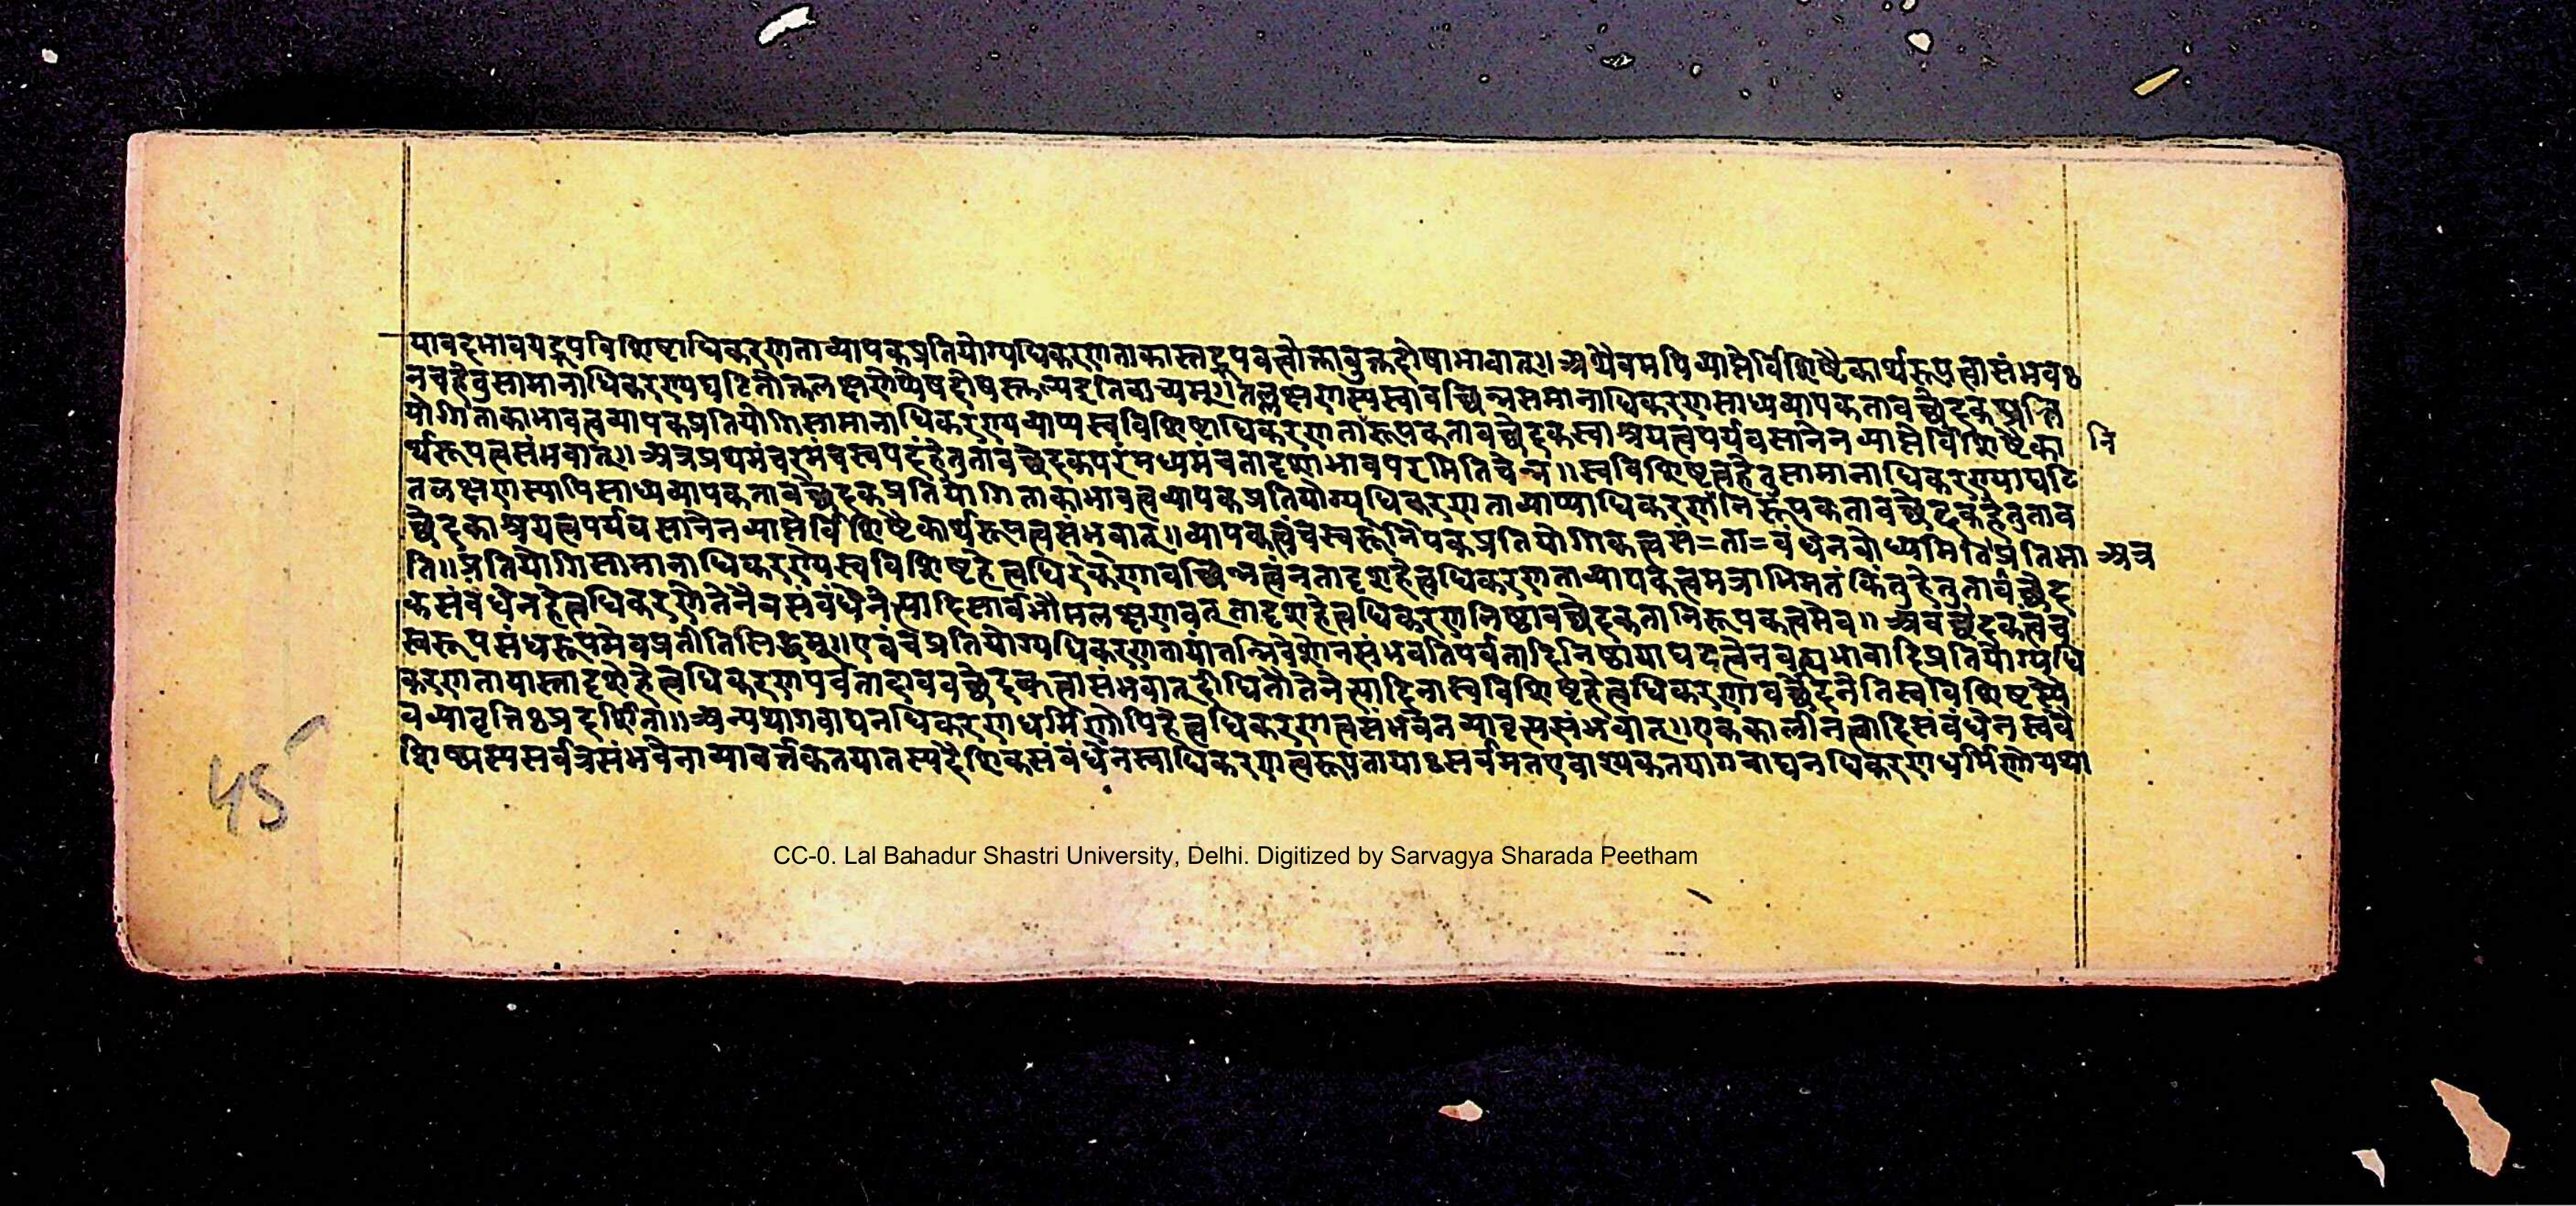 यावदभावयद्रूपविशिष्टाधिकरणताव्यापकप्रतियोग्यधिकरणताकास्तद्रूपवत्त्वोक्तावुक्तदोषाभावात्॥अथैवमपिव्याप्तेर्विशिष्टैकार्थरूपत्वासंभवः
नचहेतुसामानाधिकरण्यघटितोक्तलक्षणेप्येषदोषस्तुल्यइतिवाच्यम्॥तल्लक्षणस्यस्वावच्छिन्नसमानाधिकरणसाध्यव्यापकतावच्छेदकप्रति
योगिताकाभावत्वव्यापकप्रतियोगिसामानाधिकरण्यव्याप्यस्वविशिष्टाधिकरणतारूपकतावच्छेदकस्वाश्रयत्वपर्यवसानेनव्याप्तेर्विशिष्टैका नि
र्थरूपत्वसंभवात्॥अत्रप्रथमंचरमंचस्वपदंहेतुतावच्छेदकपरंमध्यमंचतादृशाभावपरमितिचेन्न॥स्वविशिष्टत्वहेतुसामानाधिकरण्याघटि
तलक्षणस्यापिसाध्यव्यापकतावच्छेदकप्रतियोगिताकाभावत्वव्यापकप्रतियोग्यधिकरणताव्याप्याधिकरणतानिरूपकतावच्छेदकहेतुताव
च्छेदकाश्रयत्वपर्यवसानेनव्याप्तेर्विशिष्टैकार्थरूपत्वसंभवात्॥व्यापकत्वंचस्वरूनिपकप्रतियोगिकत्वसं=ता=वंधेनबोध्यमितिप्रतिभा अत्र
ति॥प्रतियोगिसामानाधिकरण्येस्वविशिष्टहेत्वधिकरणावच्छिन्नत्वंनतादृशहेत्वधिकरणताव्यापकत्वमत्राभिमतंकिंतुहेतुतावच्छेद
कसंबंधेनहेत्वधिकरणेतेनैवसंबंधेनेत्यादिसार्वभौमलक्षणवत्तादृशहेत्वधिकरणनिष्ठावच्छेदकतानिरूपकत्वमेव॥अवच्छेदकत्वंच
स्वरूपसंधरूपमेवप्रतीतिसिद्धम्॥एवंचप्रतियोग्यधिकरणतायांतन्निवेशोनसंभवतिपर्वतादिनिष्ठायाघटत्वेनवह्न्यभावादिप्रतियोग्यधि
करणतायास्तादृशेहेत्वधिकरणपर्वतादावववच्छेदकत्वासंभवात्दीधितौतेनेत्यादिनास्वविशिष्टहेत्वधिकरणावच्छेदेनेतिस्वविशिष्टस्यै
वव्यावृत्तिःप्रदर्शिता॥अन्यथागवाद्यनधिकरणधर्मिणोपिहेत्वधिकरणत्वसंभवेनव्यावृत्त्यसंभवात्॥एककालीनत्वादिसंबंधेनस्ववै
शिष्ट्यस्यसर्वत्रसंभवेनाव्यावर्त्तकतयातस्यदैशिकसंबंधेनस्वाधिकरणत्वरूपतायाःसर्वमतएवावश्यकतयागवाद्यनधिकरणधर्मिणोयथा
45
CC-0. Lal Bahadur Shastri University, Delhi. Digitized by Sarvagya Sharada Peetham